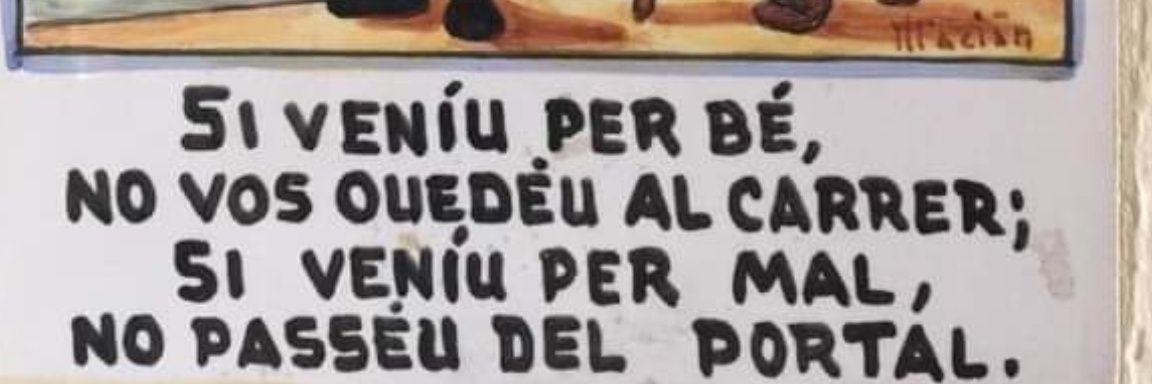 Mación
SI VENÍU PER BÉ,
NO VOS QUEDÈU AL CARRER;
SI VENÍU PER MAL,
NO PASSÉU DEL PORTAL.